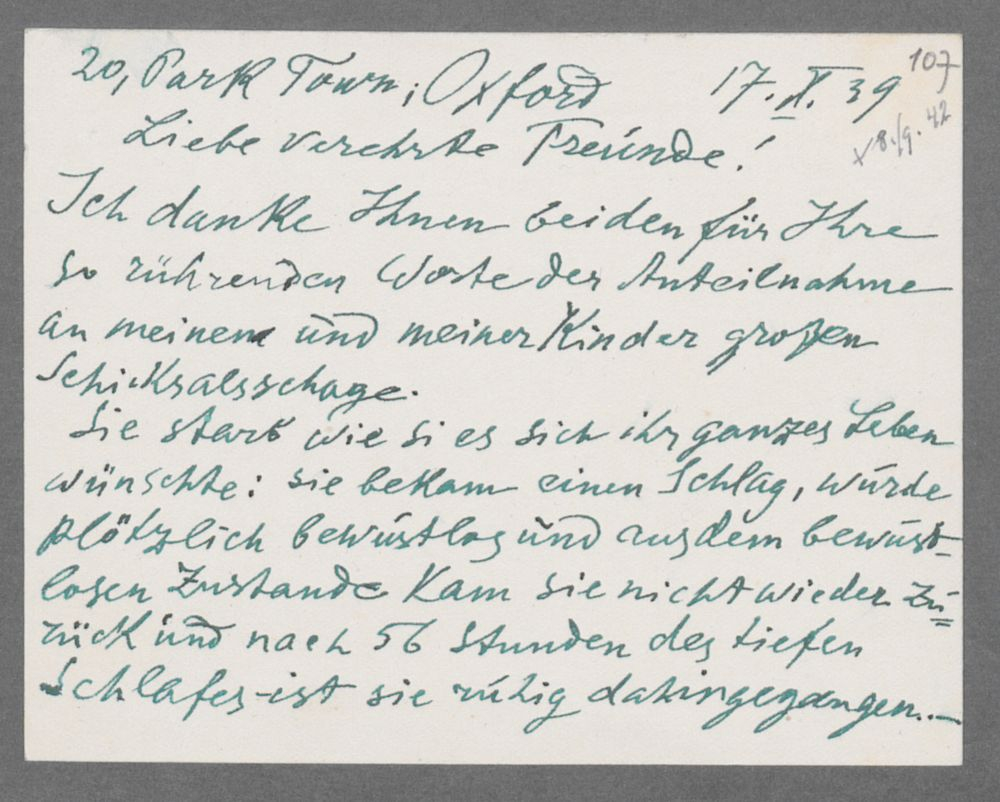 20, Park Town, Oxford 17. X. 39
107
x 8./9. 42
Liebe verehrte Freunde!
Ich danke Ihnen beiden für Ihre
so rührenden Worte der Anteilnahme
an meinem und meiner Kinder großen
Schicksalsschage.
Sie starb wie si es sich ihr ganzes Leben
wünschte: sie bekam einen Schlag, wurde
plötzlich bewustlos und aus dem bewust-
losen Zustande kam sie nicht wieder zu=
rück und nach 56 Stunden des tiefen
Schlafes ist sie ruhig dahingegangen..—